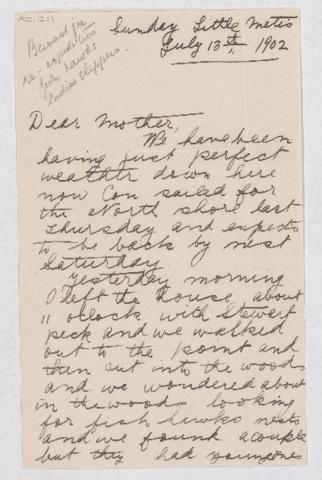 Acc. 1217
Bernard jr
re. expedition
for hawks
Ladies Slippers.
Sunday Little Metis
July 13th 1902
Dear Mother,
We have been
having just perfect
weather down here
now Con sailed for
the North shore last
Thursday and expects
to be back by next
Saturday.
Yesterday morning
I left the house about
11 oclock with Stewert
peck and we walked
out to the point and
then cut into the woods
and we wondered about
in the woods looking
for fish hawks nests
and we found a couple
but they had young ones